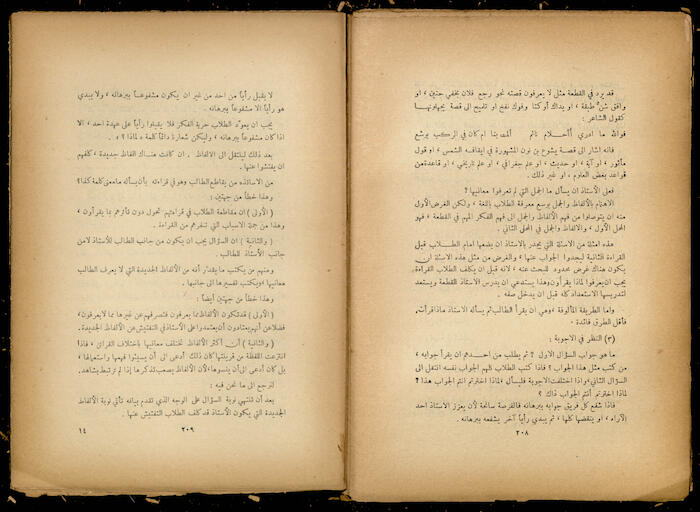 قد يرد في القطعة مثل لا يعرفون قصته نحو رجع فلان بخفي حنين ، او
وافق شن طبقة ، او يداك أوكتا وفوك نفخ او تلميح الى قصة يجهلونها
كقول الشاعر :
فوالله ما ادري أأحلام نائم ألمت بنا ام كان في الركب يوشع
فانه اشار الى قصة يشوع بن نون المشهورة في ايقافه الشمس ، او قول
مأثور ، او آية ، او حديث ، او علم جغرافي ، او علم تاريخي ، او قاعدة من
قواعد بعض العلوم ، او غير ذلك .
فعلى الأستاذ ان يسأل ما الجمل التي لم تعرفوا معانيها ?
الاهتمام بالألفاظ والجمل يوسع معرفة الطلاب باللغة ، ولكن الغرض الأول
منه ان يتوصلوا من فهم الألفاظ والجمل الى فهم الفكر المهم في القطعة ، فهو
المحل الأول ، والالفاظ والجمل في المحل الثاني .
هذه امثلة من الاسئلة التي يجدر بالاستاذ ان يضعها امام الطلاب قبل
القراءة الثانية ليجدوا الجواب عنها ، والغرض من مثل هذه الاسئلة ان
يكون هناك غرض محدود للبحث عنه ، لانه قبل ان يكلف الطلاب القراءة
يجب ان يعرفوا لماذا يقرأون وهذا يستدعي ان يدرس الأستاذ القطعة ويستعد
لتدريسها الاستعداد كله قبل ان يدخل صفه .
واما الطريقة المألوفة ، وهي ان يقرأ الطالب ثم يسأله الاستاذ ماذا قرأت,
فأقل الطرق فائدة .
(٣) النظر في الاجوبة :
ما هو جواب السؤال الاول ? ثم يطلب من احدهم ان يقرأ جوابه ،
من كتب مثل هذا الجواب ? فاذا كتب الطلاب لهم الجواب نفسه انتقل الى
السؤال الثاني، واذا اختلفت الأجوبة فليسأل ، لماذا اخترتم انتم الجواب هذا ?
لماذا اخترتم أنتم الجواب ذاك ?
فاذا شفع كل فريق جوابه ببرهانه فالفرصة سانحة لأن يعزز الاستاذ احد
الآراء ، او ينقضها كلها ، ثم يبدي رأياً آخر يشفعه ببرهانه .
٢٠٨
لا يقبل رأياً من احد من غير ان يكون مشفوعاً ببرهانه ، ولا يبدي
هو رأياً الا مشفوعاً ببرهانه .
يجب ان يعود الطلاب حرية الفكر فلا يقبلوا رأياً على عهدة احد ، الا
اذا كان مشفوعاً ببرهانه ، وليكن شعارنا دائماً كلمة « لماذا ? » .
بعد ذلك لينتقل الى الالفاظ . ان كانت هناك الفاظ جديدة ، كلفهم
ان يفتشوا عنها .
من الاساتذه من يقاطع الطالب وهو في قراءته بأن يسأله ما معنى كلمة كذا؟
وهذا خطأ من جهتين :
( الأولى ) ان مقاطعة الطلاب في قراءتهم تحول دون تأثرهم بما يقرأون ،
وهذا من جملة الاسباب التي تنفرهم من القراءة .
( والثانية ) ان السؤال يجب ان يكون من جانب الطالب للأستاذ لا من
جانب الأستاذ للطالب .
ومنهم من يكتب ما يقدر أنه من الألفاظ الجديدة التي لا يعرف الطالب
معانيها ، ويكتب تفسيرها الى جانبها .
وهذا خطأ من جهتين أيضاً :
( الأولى ) قد تكون الألفاظ مما يعرفون فتصرفهم عن غيرها مما لا يعرفون،
فضلا عن أنهم يعتادون أن يعتمدوا على الأستاذ في التفتيش عن الألفاظ الجديدة.
( والثانية ) أن أكثر الألفاظ تختلف معانيها باختلاف القرائن ، فاذا
انتزعت اللفظة من قرينتها كان ذلك أدعى الى أن يسيئوا فهمها واستعمالها ،
بل كان أدعى الى أن ينسوها، لأن الألفاظ يصعب تذكرها إذا لم ترتبط بشاهد.
لنرجع الى ما نحن فيه :
بعد أن تنتهي نوبة السؤال على الوجه الذي تقدم بيانه تأتي نوبة الألفاظ
الجديدة التي يكون الأستاذ قد كلف الطلاب التفتيش عنها .
٢٠٩
١٤